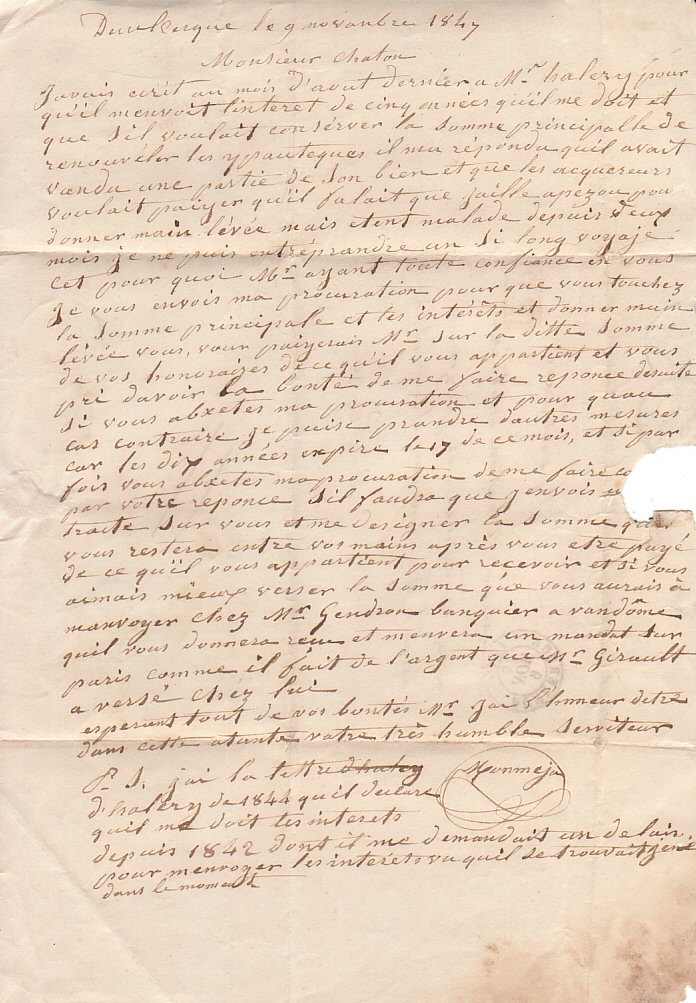 Dunkerque le 9 novembre 1847
Monsieur Chaton
Javais ecrit au mois d'avout dernier a Mr halezy pour
qu'il menvoit l'interet de cinq années qu'il me doit et
que s'il voulait consérver la somme principalle de
renouvéler les ypauteques il ma repondu quil avait
vœndu une partie de son bien et que les acquereurs
voulait paiyer qu'il falait que jaille apezou pour
donner main lévée mais etent malade depuis deux
mois je ne puis entréprandre un si long voyaje
Cet pour quoi Mr ayant toute confiance en vous
je vous envois ma procuration pour que vous touchez
la somme principale et les intérêts et donner main
lévée vous, vour paiyerais Mr sur la ditte somme
de vos honoraires de ce qu'il vous appartient et vous
pri davoir la bonté de me faire reponce desuite
si vous abxetes ma procuration et pour quau
cas contraire je puise prandre d'autres mesures
car les dix années expire le 17 de ce mois, et si par
fois vous abxetes ma procuration de me faire
par votre reponce s'il faudra que jenvois
traite sur vous et me designer la somme qui
vous restera entre vos mains après vous etre payé
de ce qu'il vous appartient pour recevoir et si vous
aimais mieux verser la somme que vous aurais à
manvoyer chez Mr Gendron banquier a vandôme
quil vous donnera recu et menvera un mandat sur
paris comme il fait de l'argent que Mr Girault
a versé chez lui
esperant tout de vos bontés Mr jai l'honneur detre
dans cette atante votre très humble serviteur
Monmeja
P. S. jai la lettre dhalezy
d'halezy de 1844 quil declare
quil me doit les interets
depuis 1842 dont il me demandait un delais
pour menvoyer les interets vu quil se trouvait jéné
dans le moment